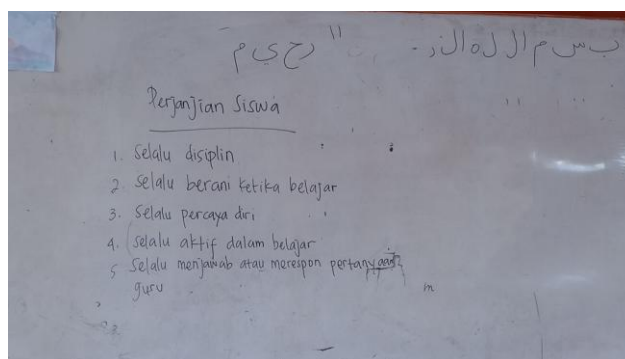 ب س م ا ل ل ه ا ل ر
ر ح ي م
Perjanjian Siswa
1. Selalu disiplin
2. Selalu berani ketika belajar
3. Selalu percaya diri
4. Selalu aktif dalam belajar
5 Selalu menjawab atau merespon pertanyaan2
guru
m